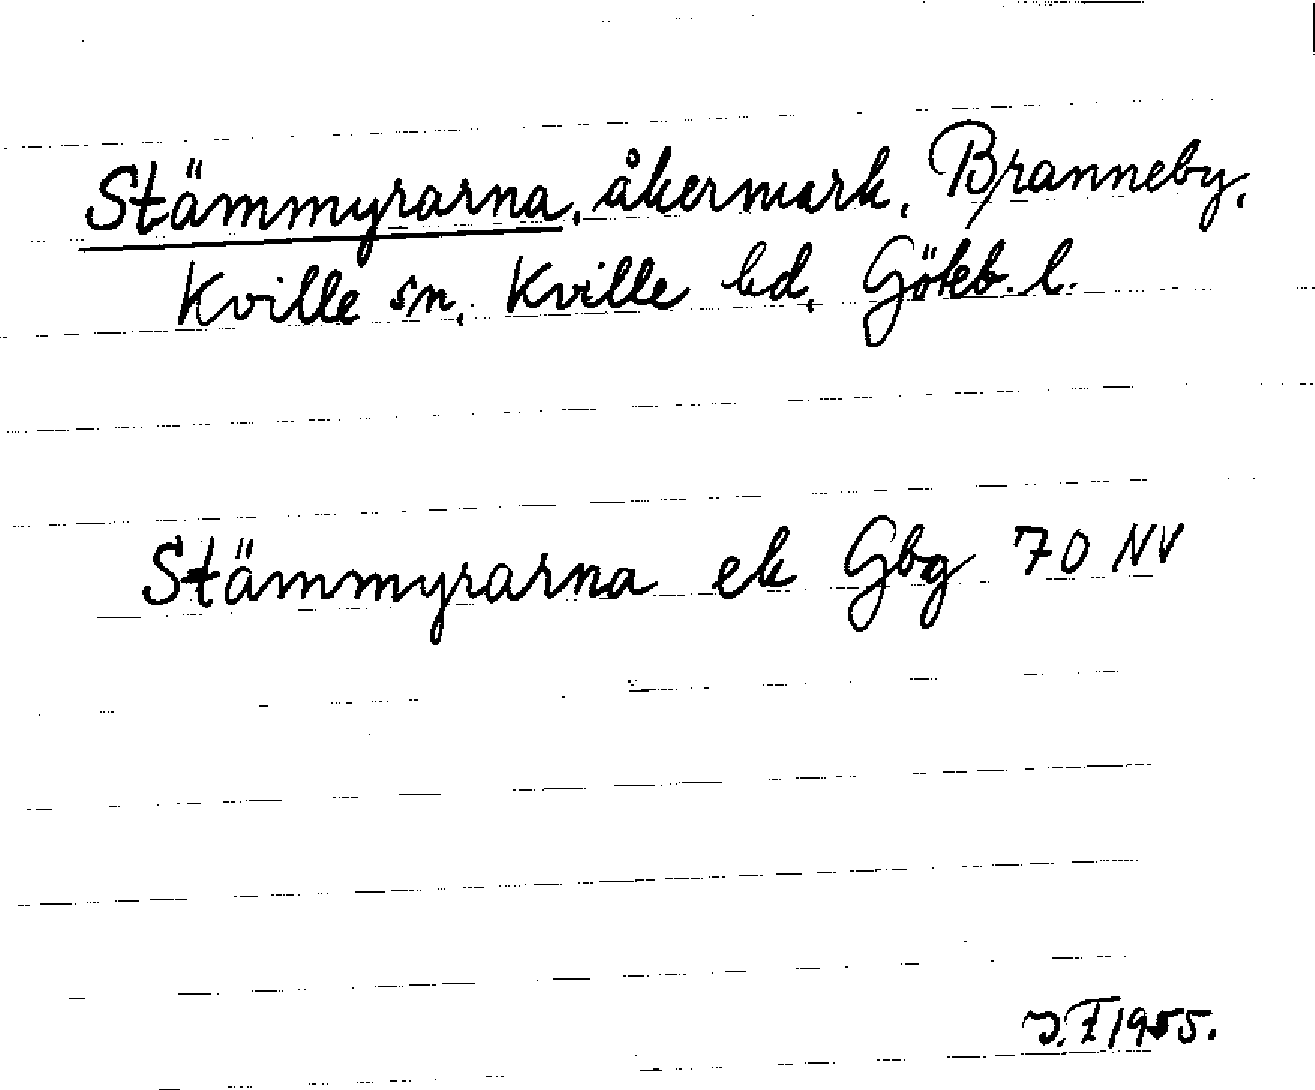 Stämmyrarna, åkermark, Branneby,
Kville sn, Kville hd, Göteb. l.
Stämmyrarna ek Gbg 70 NV
J.F 1955.